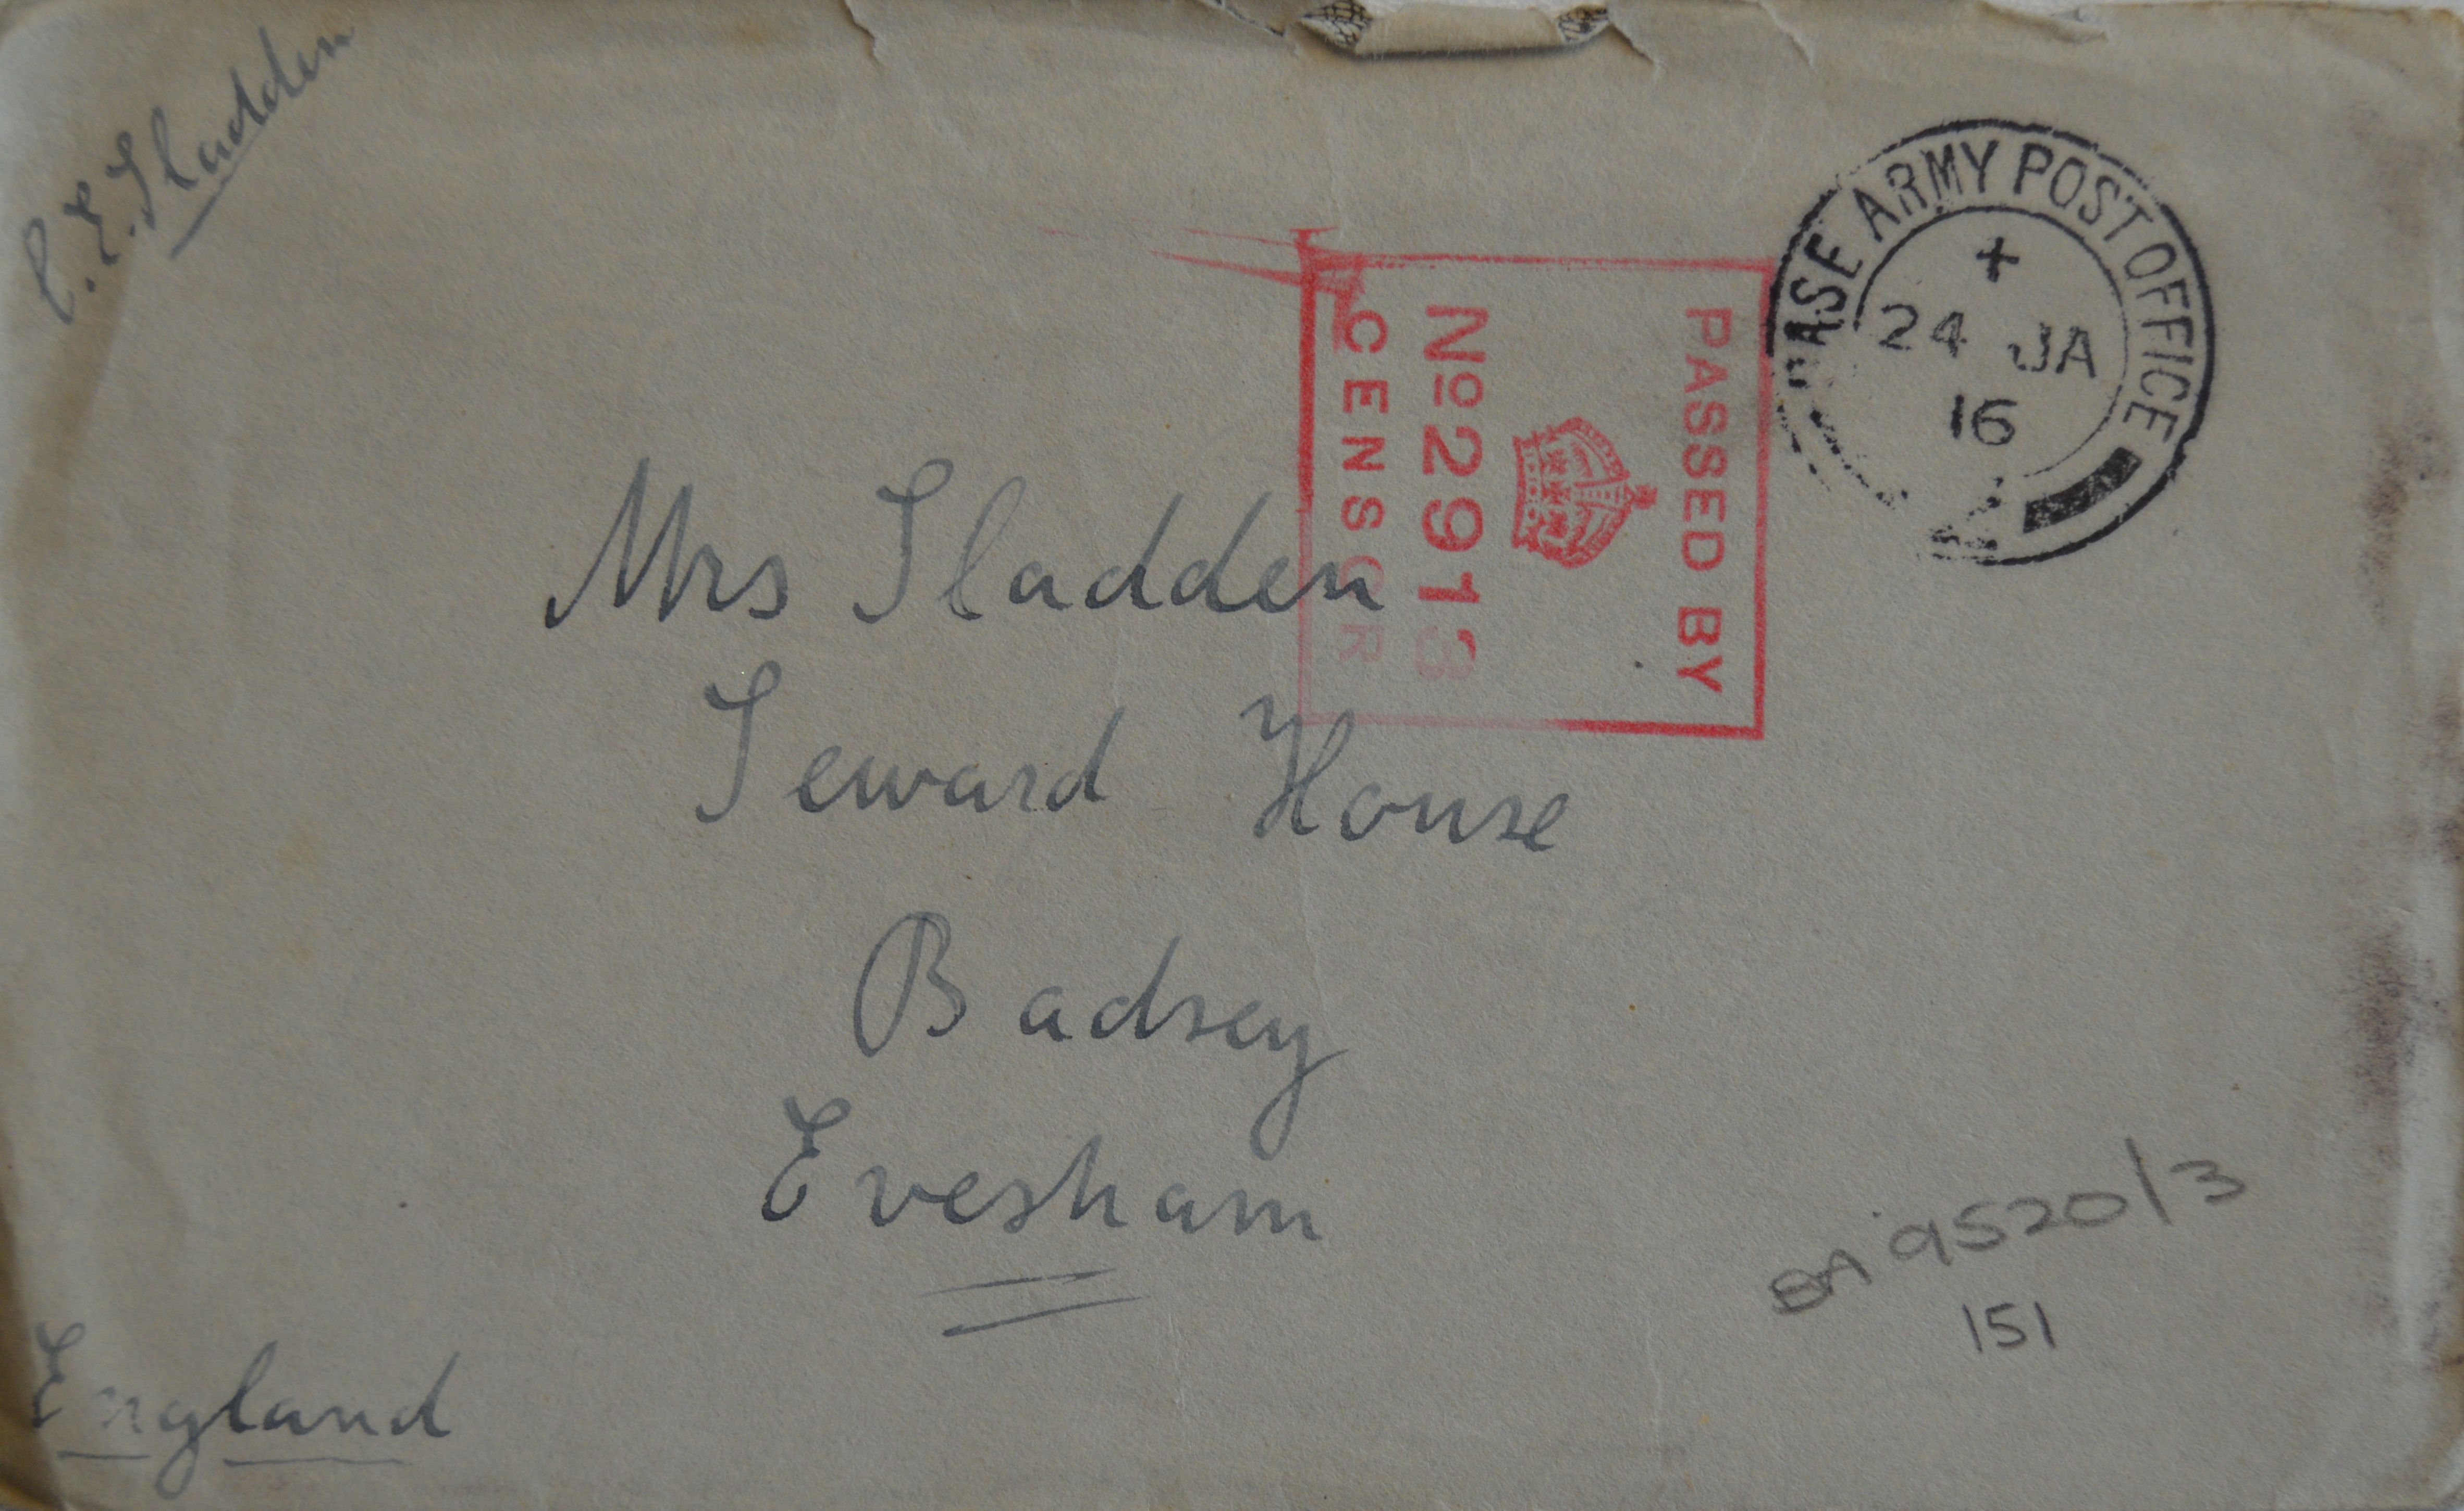 C. E. Sladden
BASE ARMY POST OFFICE
+
24 JA
16
PASSED BY
No 2913
CENSOR
Mrs Sladden
Seward House
Badsey
Evesham
England
9520/3
151